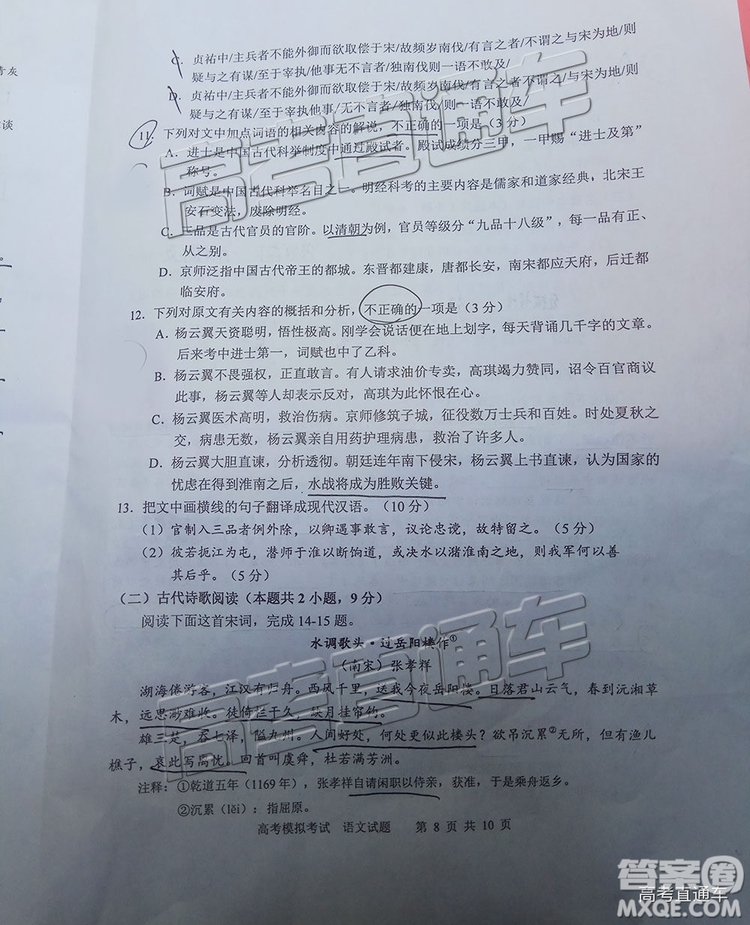 C. 贞祐中/主兵者不能外御而欲取偿于宋/故频岁南伐/有言之者/不谓之与宋为地/则
疑与之有谋/至于宰执/他事无不言者/独南伐则一语不敢及/
D. 贞祐中/主兵者不能外御而欲取偿于宋/故频岁南伐/有言之者/不谓之与宋为地/则
疑与之有谋/至于宰执他事/无不言者/独南伐/则一语不敢及/
11. 下列对文中加点词语的相关内容的解说，不正确的一项是（3分）
A．进士是中国古代科举制度中通过殿试者。殿试成绩分三甲，一甲赐“进士及第”
称号。
B．词赋是中国古代科举名目之一。明经科考的主要内容是儒家和道家经典，北宋王
安石变法，废除明经。
C．三品是古代官员的官阶。以清朝为例，官员等级分“九品十八级”，每一品有正、
从之别。
D．京师泛指中国古代帝王的都城。东晋都建康，唐都长安，南宋都应天府，后迁都
临安府。
12．下列对原文有关内容的概括和分析，不正确的一项是（3分）
A．杨云翼天资聪明，悟性极高。刚学会说话便在地上划字，每天背诵几千字的文章。
后来考中进士第一，词赋也中了乙科。
B．杨云翼不畏强权，正直敢言。有人请求油价专卖，高琪竭力赞同，诏令百官商议
此事，杨云翼等人却表示反对，高琪为此怀恨在心。
C．杨云翼医术高明，救治伤病。京师修筑子城，征役数万士兵和百姓。时处夏秋之
交，病患无数，杨云翼亲自用药护理病患，救治了许多人。
D．杨云翼大胆直谏，分析透彻。朝廷连年南下侵宋，杨云翼上书直谏，认为国家的
忧虑在得到淮南之后，水战将成为胜败关键。
13．把文中画横线的句子翻译成现代汉语。（10分）
（1）官制入三品者例外除，以卿遇事敢言，议论忠谠，故特留之。（5分）
（2）彼若扼江为屯，潜师于淮以断饷道，或决水以潴淮南之地，则我军何以善
其后乎。（5分）
（二）古代诗歌阅读（本题共2小题，9分）
阅读下面这首宋词，完成14-15题。
水调歌头·过岳阳楼作①
（南宋）张孝祥
湖海倦游客，江汉有归舟。西风千里，送我今夜岳阳楼。日落君山云气，春到沅湘草
木，远思渺难收。徒倚栏干久，缺月挂帘钩。
雄三楚，吞七泽，隘九州。人间好处，何处更似此楼头？欲吊沉累②无所，但有渔儿
樵子，哀此写离忧。回首叫虞舜，杜若满芳洲。
注释：①乾道五年（1169年），张孝祥自请闲职以侍亲，获准，于是乘舟返乡。
②沉累（lěi）：指屈原。
高考模拟考试 语文试题 第 8 页 共 10 页
高考直通车
高考直通车
答案圈
高考直通车
MXQE.COM